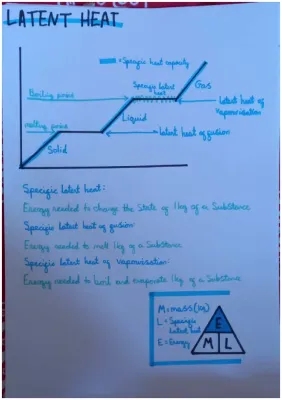 LATENT HEAT
= Specific heat capacity
Specific latent
heat
Gas
Boiling point
latent heat of
vaporisation
Liquid
melting point
latent heat of fusion
Solid
Specific latent heat:
Energy needed to change the state of 1kg of a substance
Specific latent heat of fusion:
Energy needed to melt 1kg of a substance
Specific latent heat of vaporisation:
Energy needed to boil and evaporate 1kg of a substance
M = mass (kg)
L = Specific
latent heat
E = Energy
E
M L